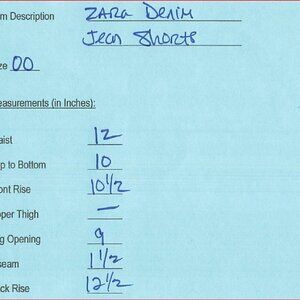 m Description ZARA Denim
Jean Shorts
ze 00
easurements (in Inches):
aist 12
p to Bottom 10
ont Rise 10 1/2
per Thigh —
g Opening 9
seam 1 1/2
ck Rise 12 1/2